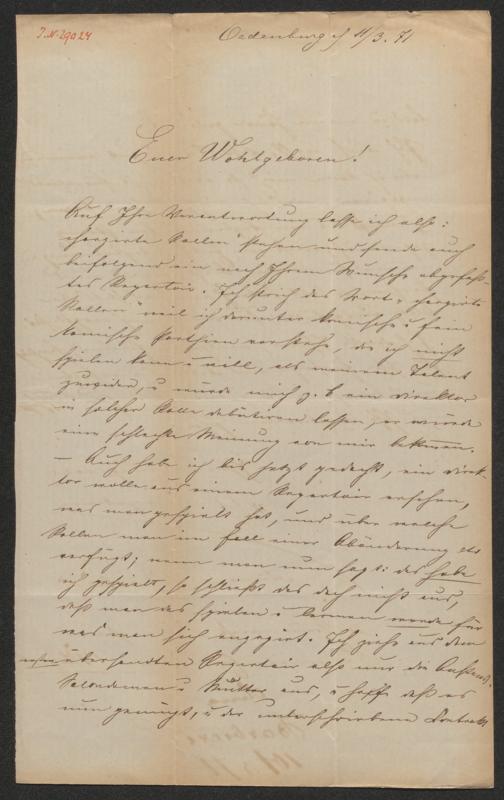 J.N. 29024
Oedenburg 11/3. 71
Euer Wohlgeboren!
Auf Ihre Verantwortung lasse ich also:
chargirte Rollen" stehen und sende auch
beifolgend ein nach Ihrem Wunsche abgefaß-
tes Repertoir. Ich strich das Wort „chargirte
Rollen" weil ich darunter komische u fein
komische Parthien verstehe, die ich nicht
spielen kann u will, als meinem Talent
zuwider, u würde mich z. b ein Direktor
in solcher Rolle debütiren lassen, er würde
eine schlechte Meinung von mir bekommen.
– Auch habe ich bis jetzt gedacht, ein Direk-
tor wolle aus einem Repertoir ersehen,
was man gespielt hat, und über welche
Rollen man im Fall einer Abänderung etc
verfügt; wenn man nun sagt: das habe
ich gespielt, so schließt das doch nicht aus,
daß man das spielen u lernen werde für
was man sich engagirt. Ich ziehe aus dem
ersten übersandten Repertoir also nur die Anstands-
Salondamen u Mütter aus, u hoffe daß es
nun genügt, u der unterschriebene Contrakt